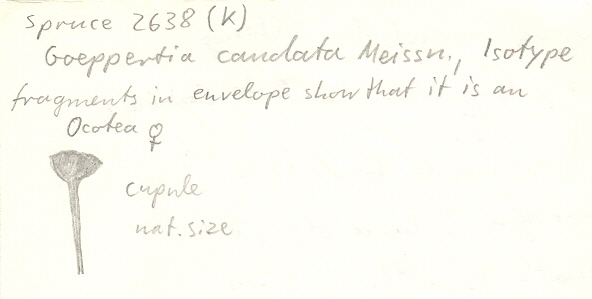 Spruce 2638 (K)
Goeppertia caudata Meissn., Isotype
fragments in envelope show that it is an
Ocotea ♀
cupule
nat. size